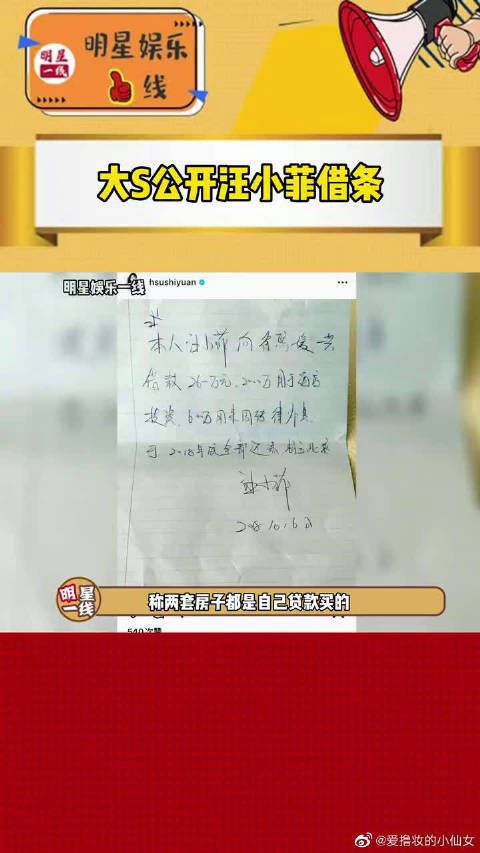 明星娱乐
一线
明星
一线
大S公开汪小菲借条
明星娱乐一线
hsushiyuan
本人汪小菲向徐熙媛共
借款260万元，200万用于酒店
投资，60万用来网络
于2018年底全部还
汪小菲
2018.10.16日
明星
一线
称两套房子都是自己贷款买的
540次赞
@爱撸妆的小仙女